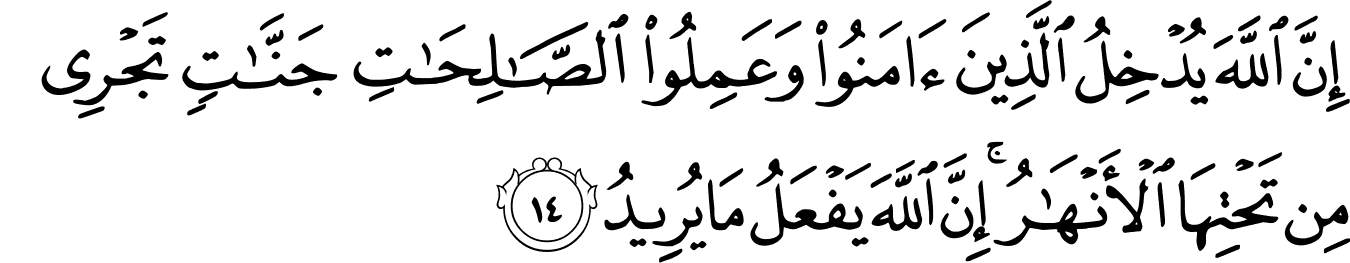 إِنَّ ٱللَّهَ يُدْخِلُ ٱلَّذِينَ ءَامَنُوا۟ وَعَمِلُوا۟ ٱلصَّـٰلِحَـٰتِ جَنَّـٰتٍ تَجْرِى
مِن تَحْتِهَا ٱلْأَنْهَـٰرُ ۚ إِنَّ ٱللَّهَ يَفْعَلُ مَا يُرِيدُ ١٤